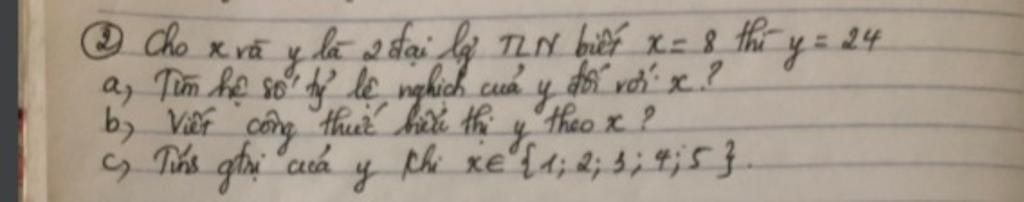 ② Cho x và y là 2 đại lg TLN biết x = 8 thì y = 24
a, Tìm hệ số tỷ lệ nghịch của y đối với x ?
b, Viết công thức biểu thị y theo x ?
c, Tính gtrị của y khi x ∈ {1; 2; 3; 4; 5}.